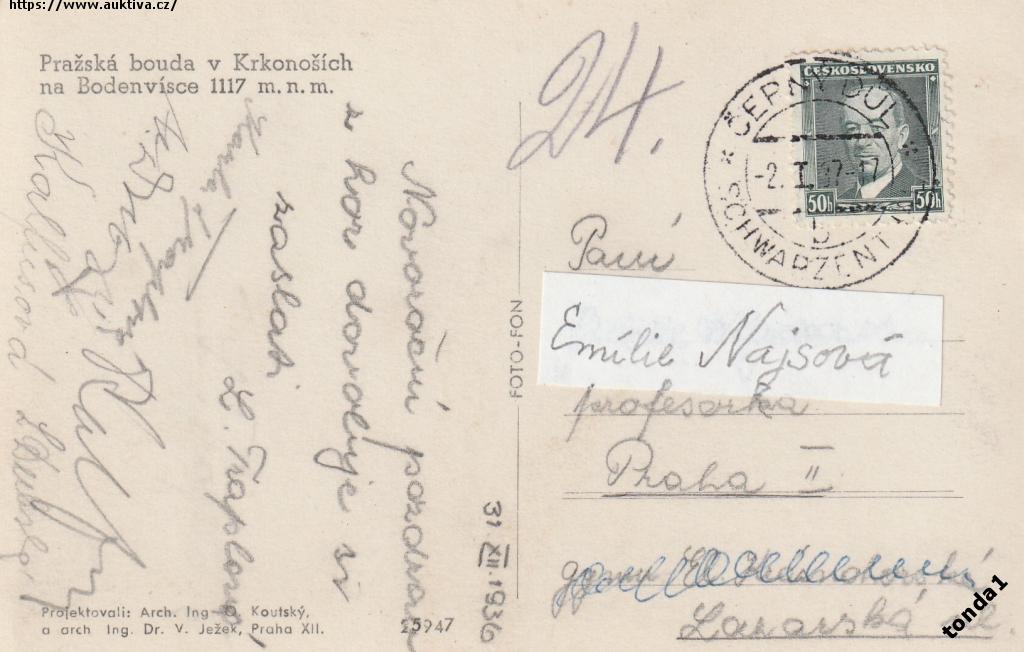 https://www.auktiva.cz/
Pražská bouda v Krkonoších
na Bodenvísce 1117 m.n.m.
Novoroční pozdrav
z hor dovoluje si
zaslati
L. Traplová
31 XII. 1936
Projektovali: Arch. Ing. O. Koutský,
a arch Ing. Dr. V. Ježek, Praha XII.
25947
FOTO-FON
24.
ČESKOSLOVENSKO
50h 50h
* ČERNÝ DŮL *
-2. I. 37-17
b
SCHWARZENTHAL
Paní
Emílie Najsová
profesorka
Praha II
Lazarská ul.
tonda1